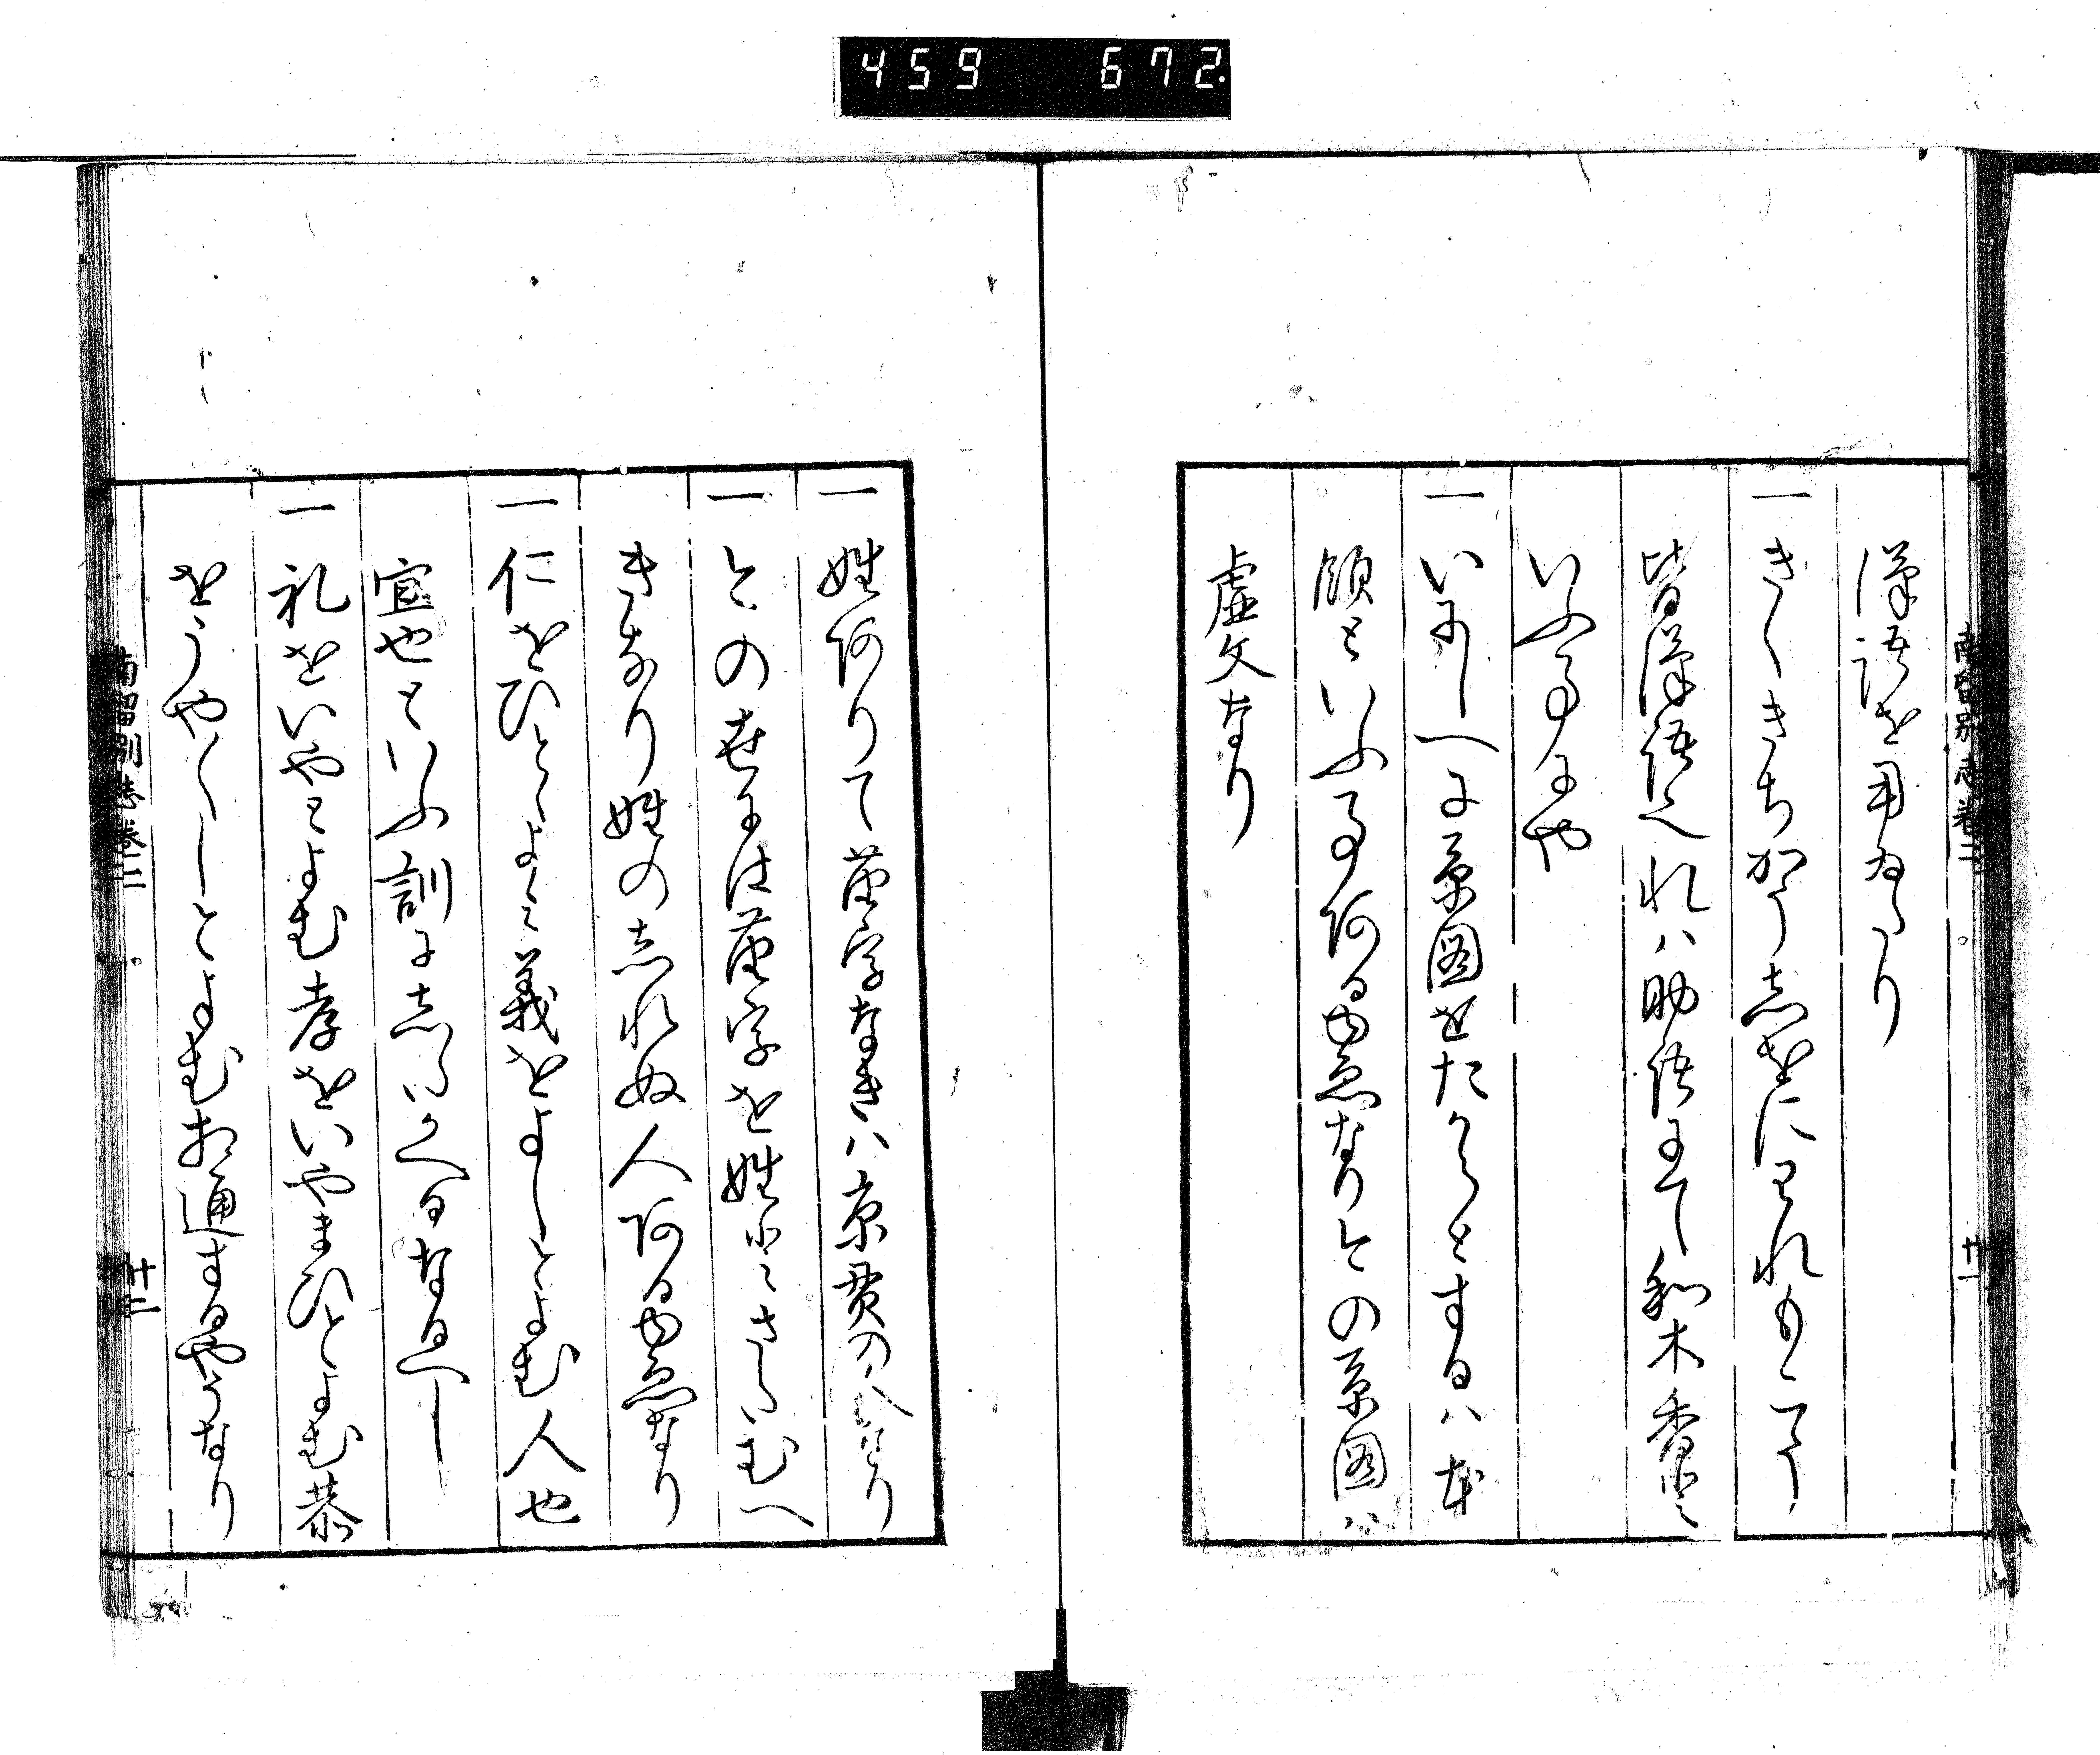 459 672
漢語を用ゐたり
一きくきちかうしをにわれもこう
皆漢語也われハ助語にて和木香と
いふ事にや
一いにしへに系圖をたからとするハ本
領といふ事阿るゆゑなり今の系圖ハ
虚文なり
南留別志巻三
十一
一姓阿りて苗字なきハ京貴の人なり
一今の世には苗字を姓とこころむへ
きなり姓のしれぬ人阿るゆゑなり
一仁をひとゝよミ義をよしとよむ人也
宜也といふ訓にしたかへるなるへし
一礼をいやとよむ孝をいやまひとよむ恭
をうやくしとよむ相通するやうなり
南留別志巻三
十二